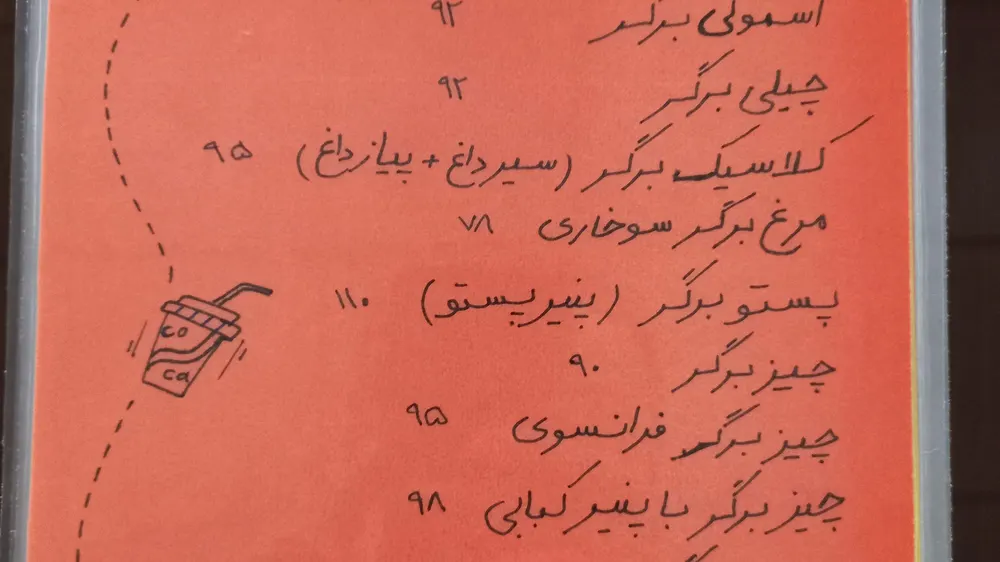 اسموکی برگر ۹۲
چیلی برگر ۹۲
کلاسیک برگر (سیر داغ + پیاز داغ) ۹۵
مرغ برگر سوخاری ۷۸
پستو برگر (پنیر پستو) ۱۱۰
چیز برگر ۹۰
چیز برگر فرانسوی ۹۵
چیز برگر با پنیر کبابی ۹۸
co
ca